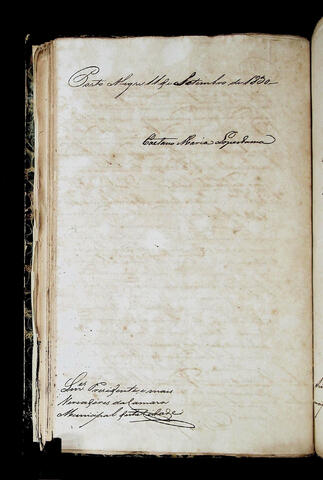 Porto Alegre 11 de Setembro de 1830
Caetano Maria Lopes Gama
Snres Presidente e mais
Vereadores da Camara
Municipal desta Cidade